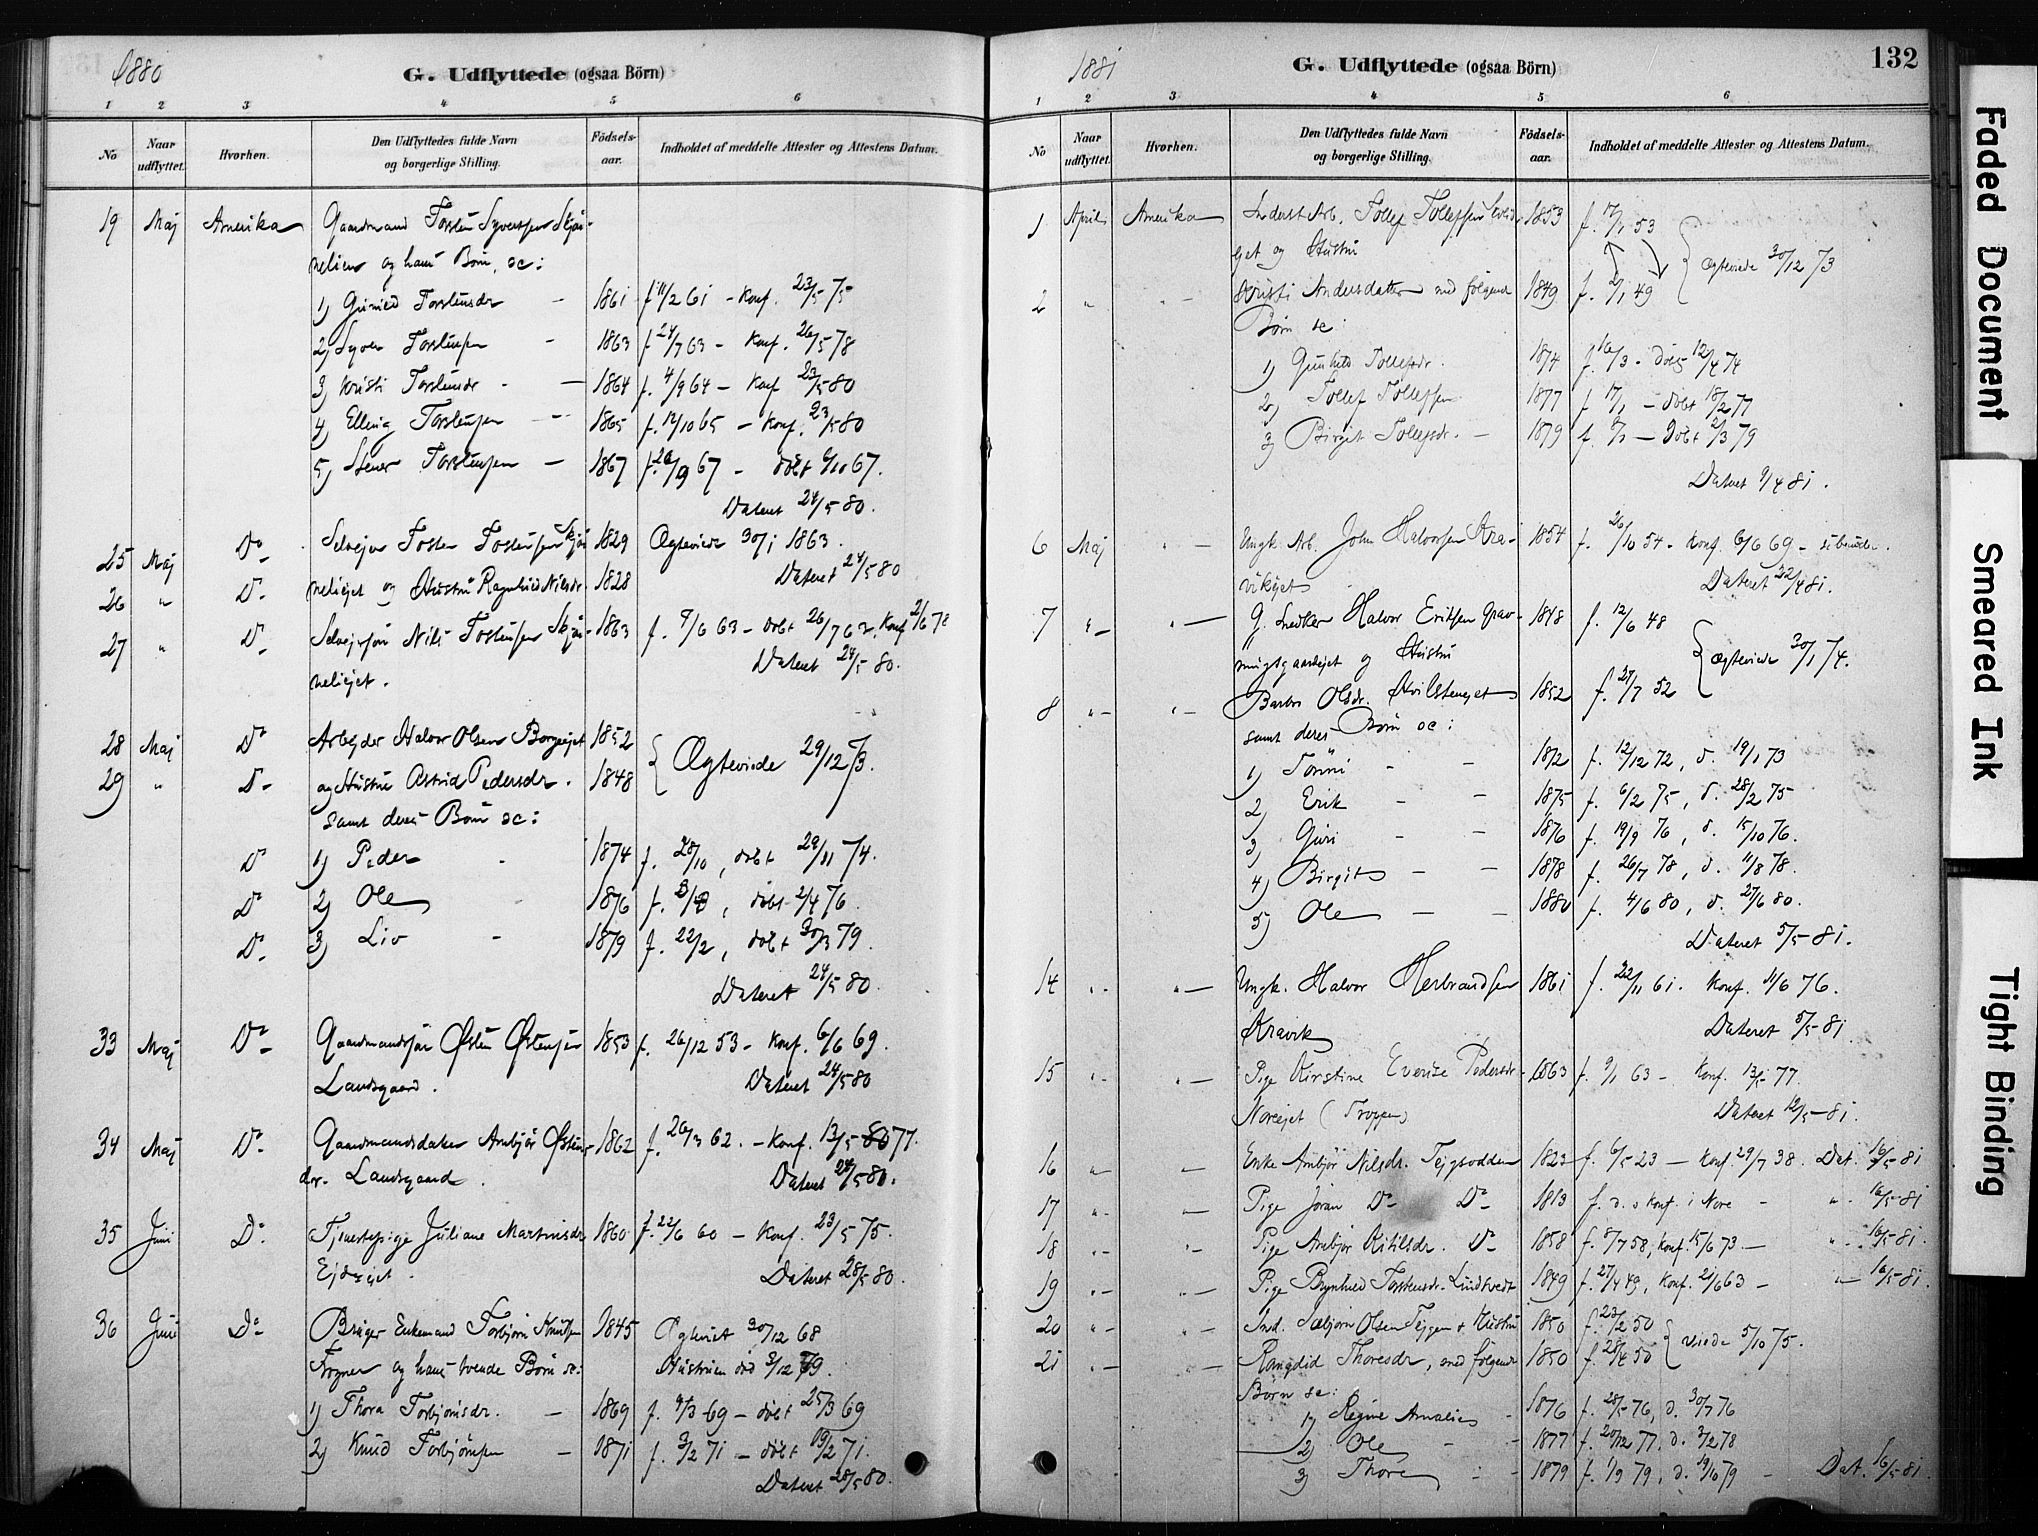 1880
G. Udflyttede (ogsaa Börn)
1 2 3 4 5 6
No
Naar udflyttet.
Hvorhen.
Den Udflyttedes fulde Navn og borgerlige Stilling.
Födsels-aar.
Indholdet af meddelte Attester og Attestens Datum.
19 Maj Amerika Gaardmand Torsten Syversen
og hans Børn, sc:
1) Torstensdr 1861 f 11/2 61 - Konf. 23/5 75
2) Syver Torstensen - 1863 f 24/7 63 - Konf. 26/5 78
3) Kristi Torstensdr - 1864 f. 4/9 64 - Konf 23/5 80
4) Elling Torstensen - 1865 f. 12/10 65 - Konf. 23/5 80
5) Torstensen - 1867 f. 26/9 67 - døbt 6/10 67.
Dateret 24/5 80.
25 Maj Do Selvejer Torstensen 1829 Ægteviede 30/1 1863.
26 " Do og Hustru Ragnhild Nilsdr 1828 Dateret 24/5 80
27 " Do Nils Torstensen 1863 f. 9/6 63 - døbt 26/7 63. Konf 2/6 78
Dateret 24/5 80.
28 Maj Do Arbejder Halvor Olsen 1852
29 " Do og Hustru Astrid Pedersdr. 1848 Ægteviede 29/12 73.
samt deres Børn sc:
Do 1) Peder - 1874 f. 28/10, døbt 29/11 74.
Do 2) Ole - 1876 f. døbt 2/4 76.
Do 3) Liv - 1879 f. 22/2, døbt 30/3 79.
Dateret 24/5 80.
33 Maj Do Gaardmandssøn Østen Østensen 1853 f. 26/12 53 - Konf. 6/6 69.
Landsgaard. Dateret 24/5 80
34 Maj Do Gaardmandsdatter Ambjør Østens- 1862 f. 26/3 62. - Konf. 13/5 77.
dr. Landsgaard. Dateret 24/5 80.
35 Juni Do Tjenestepige Juliane Martinsdr 1860 f. 22/6 60 - Konf. 23/5 75.
Dateret 28/5 80.
36 Juni Do Bruger Enkemand Torbjørn Knudsen 1845 30/12 68
og hans tvende Børn sc: Hustruen død 3/12 79.
1) Thora Torbjørnsdr. - 1869 f. 9/3 69 - døbt 25/3 69
2) Knud Torbjørnsen - 1871 f. 3/2 71 - døbt 19/2 71.
Dateret 28/5 80.
1881
G. Udflyttede (ogsaa Börn)
132
1 2 3 4 5 6
No
Naar udflyttet.
Hvorhen.
Den Udflyttedes fulde Navn og borgerlige Stilling.
Födsels-aar.
Indholdet af meddelte Attester og Attestens Datum.
1 April Amerika Inderst Arb. Tollef Tollefsen 1853 f. 53
og Hustru Ægteviede 30/12 73
2 " " Kristi Andersdatter med følgende 1849 f. 2/1 49
Børn sc:
1) Gunhild Tollefsdr. 1874 f. 16/3 - døbt 12/4 74
2) Tollef Tollefsen 1877 f 17/1 - døbt 18/2 77
3) Birgit Tollefsdr. - 1879 f. - Døbt 2/3 79
Dateret 9/4 81.
6 Maj " - Ungk. Arb. John Halvorsen Kra- 1854 f. 26/10 54 - Konf. 6/6 69
vikejet Dateret 22/4 81.
7 " - " - G. Snedker Halvor Eriksen Grav- 1848 f. 12/6 48
ningsgaardejet og Hustru Ægteviede 30/1 74.
8 " - " - Barbro Olsdr. 1852 f. 27/7 52
samt deres Børn sc:
1) - - 1872 f. 12/12 72, d. 19/1 73
2) Erik - - 1875 f. 6/2 75, d. 28/2 75
3) Guri - - 1876 f. 19/9 76, d. 15/10 76.
4) Birgit - - 1878 f. 26/7 78, d. 11/8 78.
5) Ole - - 1880 f. 4/6 80, d. 27/6 80.
Dateret 5/5 81.
14 " - " - Ungk. Halvor Herbrandsen 1861 f. 22/11 61. Konf. 11/6 76.
Kravik Dateret 5/5 81.
15 " - " - Pige Kirstine Pedersdr. 1863 f. 9/1 63 - Konf. 13/5 77.
Noreejet Dateret 12/5 81.
16 " - Enke Ambjør Nilsdr. Tejgsodden 1823 f. 6/5 23 - Konf. 29/7 38. Dat. 16/5 81
17 " - Pige Jøran Do Do 1813 f. d. o konf. i Nore - " 16/5 81
18 " - " - Pige Ambjør Kitilsdr. Do 1858 f. 5/7 58, Konf. 15/6 73 - " 16/5 81.
19 " - " - Pige Brynhild Torstensdr. 1849 f. 27/4 49, Konf. 21/6 63 - " 16/5 81.
20 " - " - Ind. Olsen Tejgen + Hustru 1850 f. 23/2 50
viede 5/10 75.
21 " - " - Thoresdr, med følgende 1850 f. 28/4 50
Børn sc:
1) Regine Amalie - 1876 f. 28/5 76, d. 30/7 76
2) Ole - - 1877 f. 20/12 77, d. 3/2 78
3) Thore - - 1879 f. 1/9 79, d. 19/10 79 - Dat. 16/5 81
Faded Document
Smeared Ink
Tight Binding